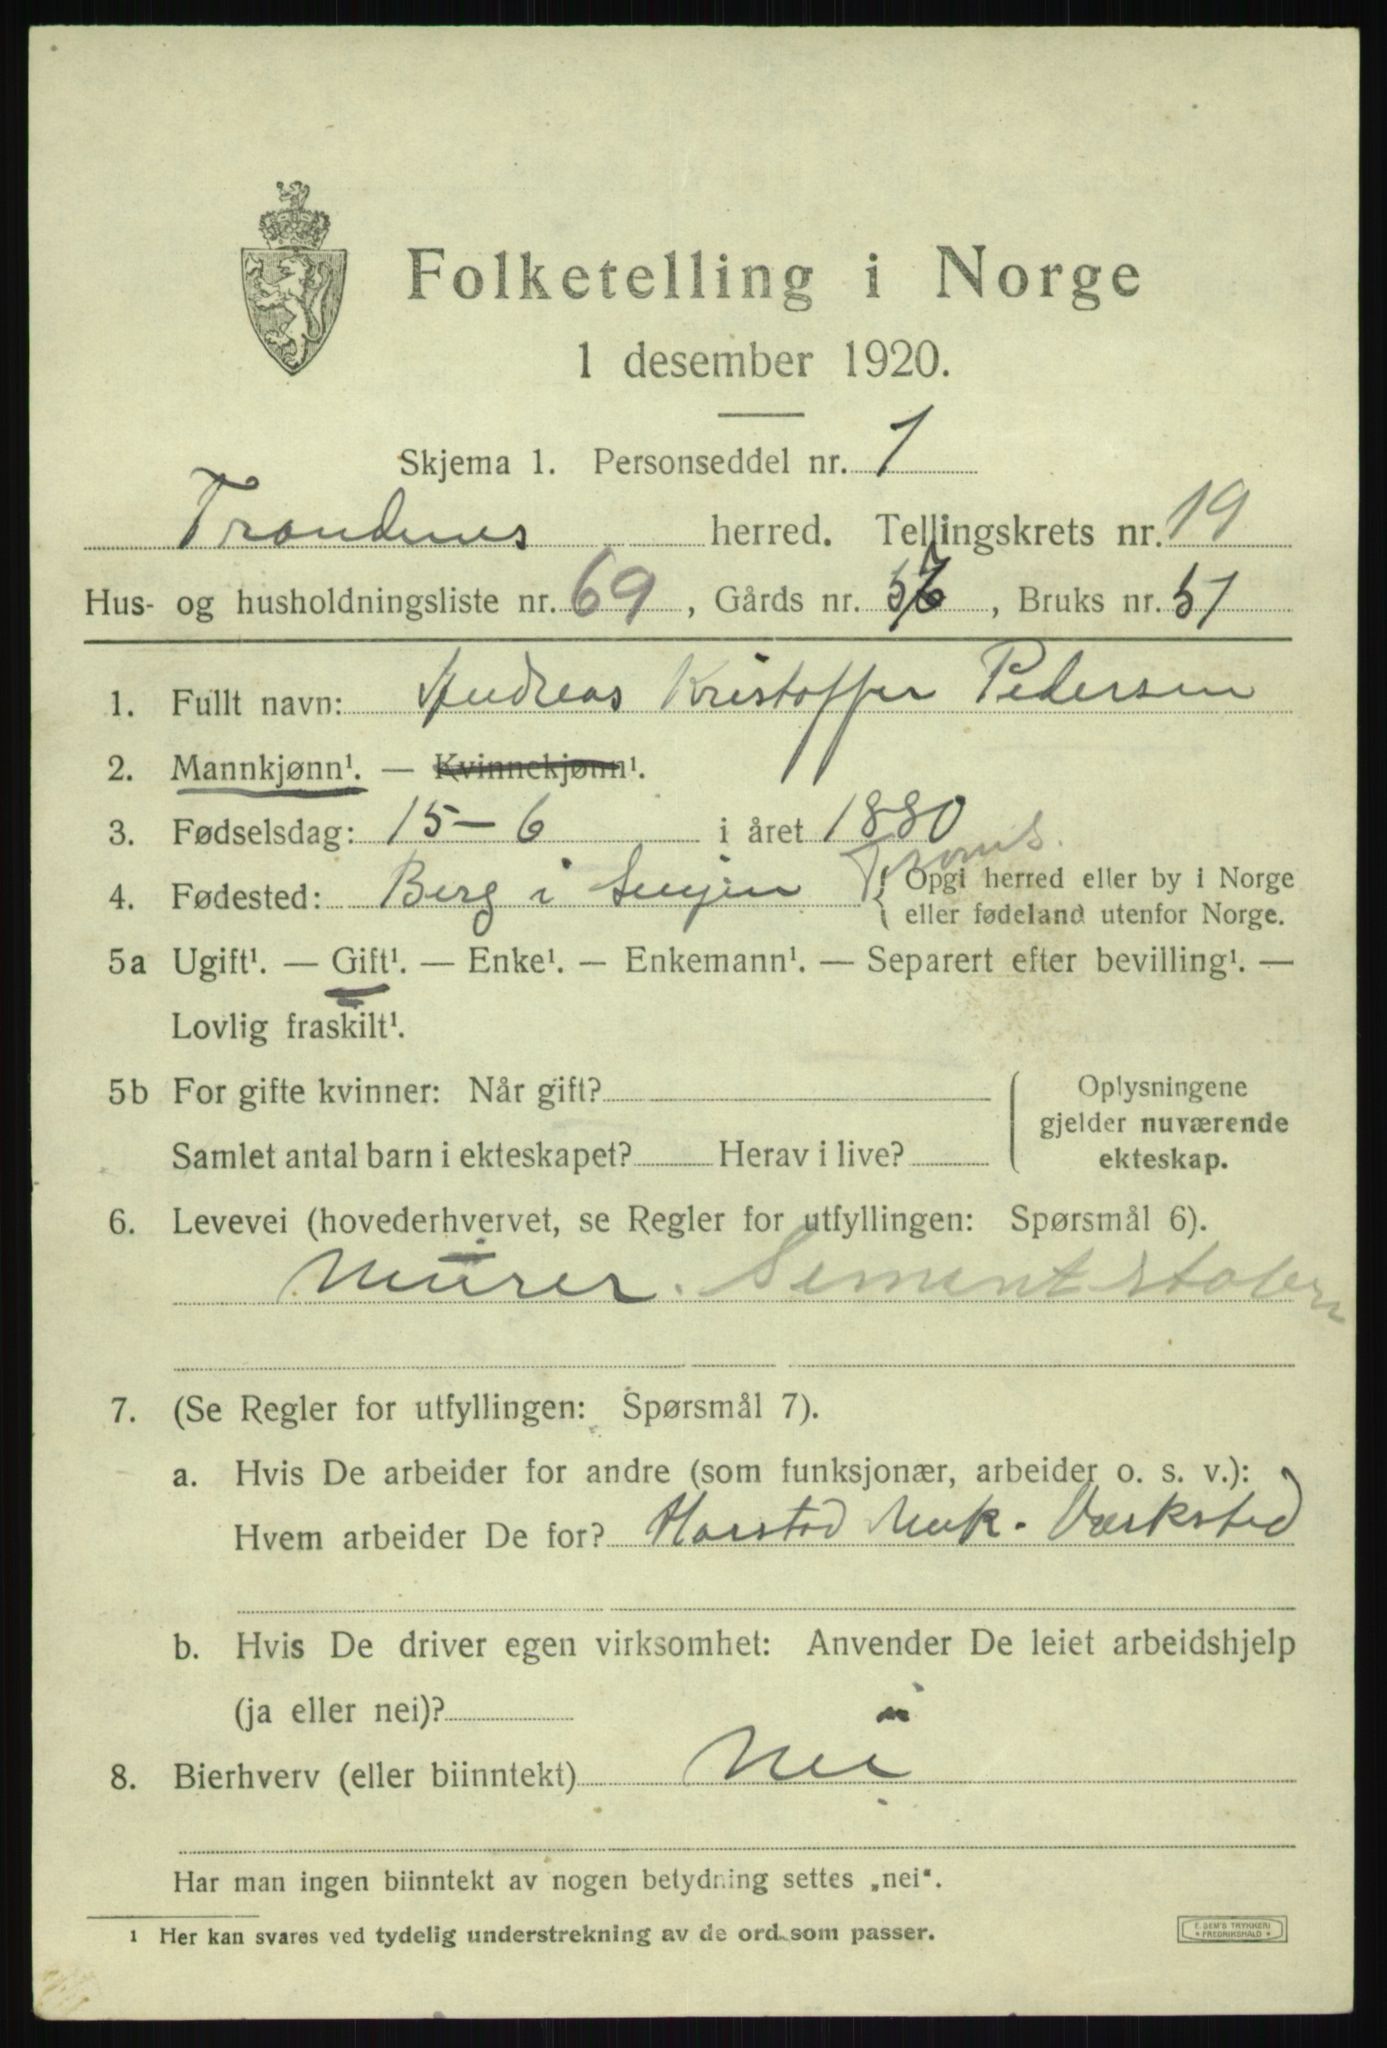 Folketelling i Norge
1 desember 1920.
Skjema 1. Personseddel nr. 1
Trondenes herred. Tellingskrets nr. 19
Hus- og husholdningsliste nr. 69, Gårds nr. 57, Bruks nr. 51
1. Fullt navn: Andreas Kristoffer Pedersen
2. Mannkjønn¹. — Kvinnekjønn¹.
3. Fødselsdag: 15-6 i året 1880
4. Fødested: Berg i Senjen Troms. Opgi herred eller by i Norge
eller fødeland utenfor Norge.
5a Ugift¹. — Gift¹. — Enke¹. — Enkemann¹. — Separert efter bevilling¹. —
Lovlig fraskilt¹.
5b For gifte kvinner: Når gift? Oplysningene
gjelder nuværende
Samlet antal barn i ekteskapet? Herav i live? ekteskap.
6. Levevei (hovederhvervet, se Regler for utfyllingen: Spørsmål 6).
Murer. Sement
7. (Se Regler for utfyllingen: Spørsmål 7).
a. Hvis De arbeider for andre (som funksjonær, arbeider o. s. v.):
Hvem arbeider De for? Harstad Mek. Værksted
b. Hvis De driver egen virksomhet: Anvender De leiet arbeidshjelp
(ja eller nei)?
8. Bierhverv (eller biinntekt) Nei
Har man ingen biinntekt av nogen betydning settes „nei“.
¹ Her kan svares ved tydelig understrekning av de ord som passer.
E. SEM'S TRYKKERI
* FREDRIKSHALD *